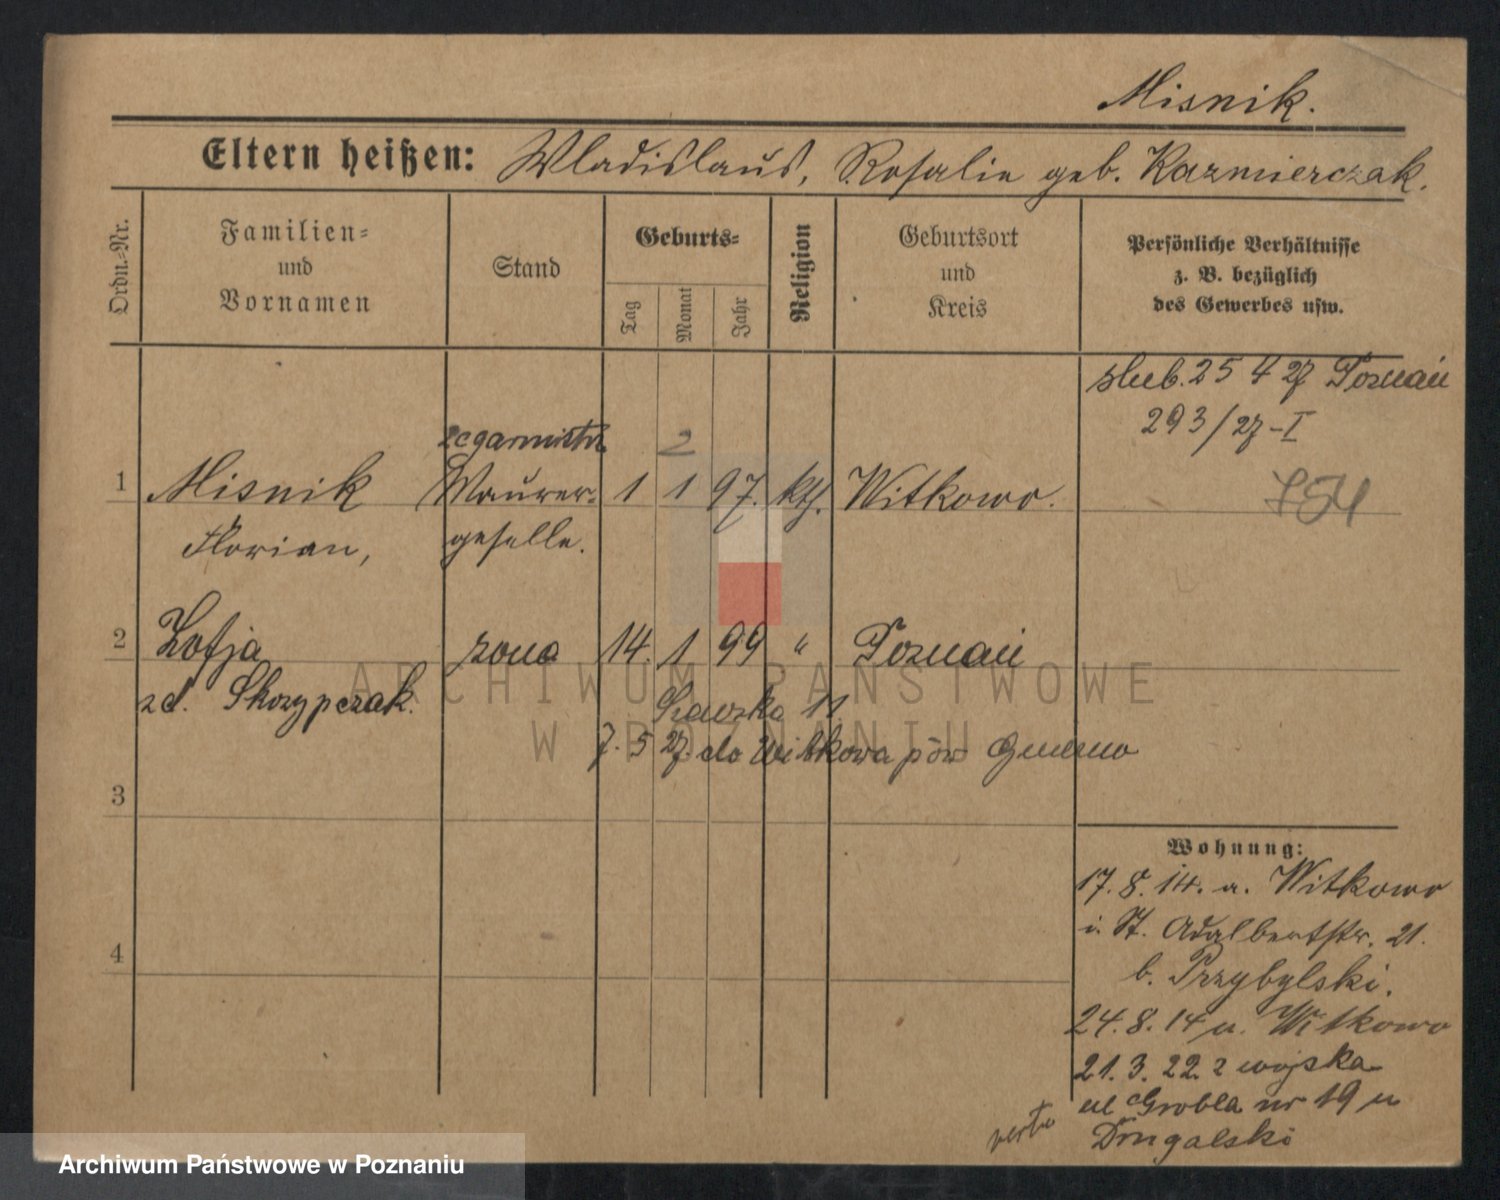 Misnik.
Eltern heißen: Wladislaus, Rosalie geb. Kazmierczak.
Ordn.-Nr.
Familien-
und
Vornamen
Stand
Geburts-
Tag
Monat
Jahr
Religion
Geburtsort
und
Kreis
Persönliche Verhältnisse
z. B. bezüglich
des Gewerbes usw.
ślub. 25 4 27 Poznań
293/27-I
754
zegarmistrz
2
1 Misnik Maurer- 1 1 97. kth. Witkowo.
Florian, geselle.
2 Zofja żona 14. 1 99 " Poznań
zd. Skrzypczak.
11
7. 5 27. do Witkowa pow Gniezno
3
4
Wohnung:
17. 8. 14. a. Witkowo
i. St. Adalbertstr. 21.
b. Przybylski.
24. 8. 14 n. Witkowo
21. 3. 22 z wojska
ul Grobla nr 19 u
verte
ARCHIWUM PAŃSTWOWE
W POZNANIU
Archiwum Państwowe w Poznaniu